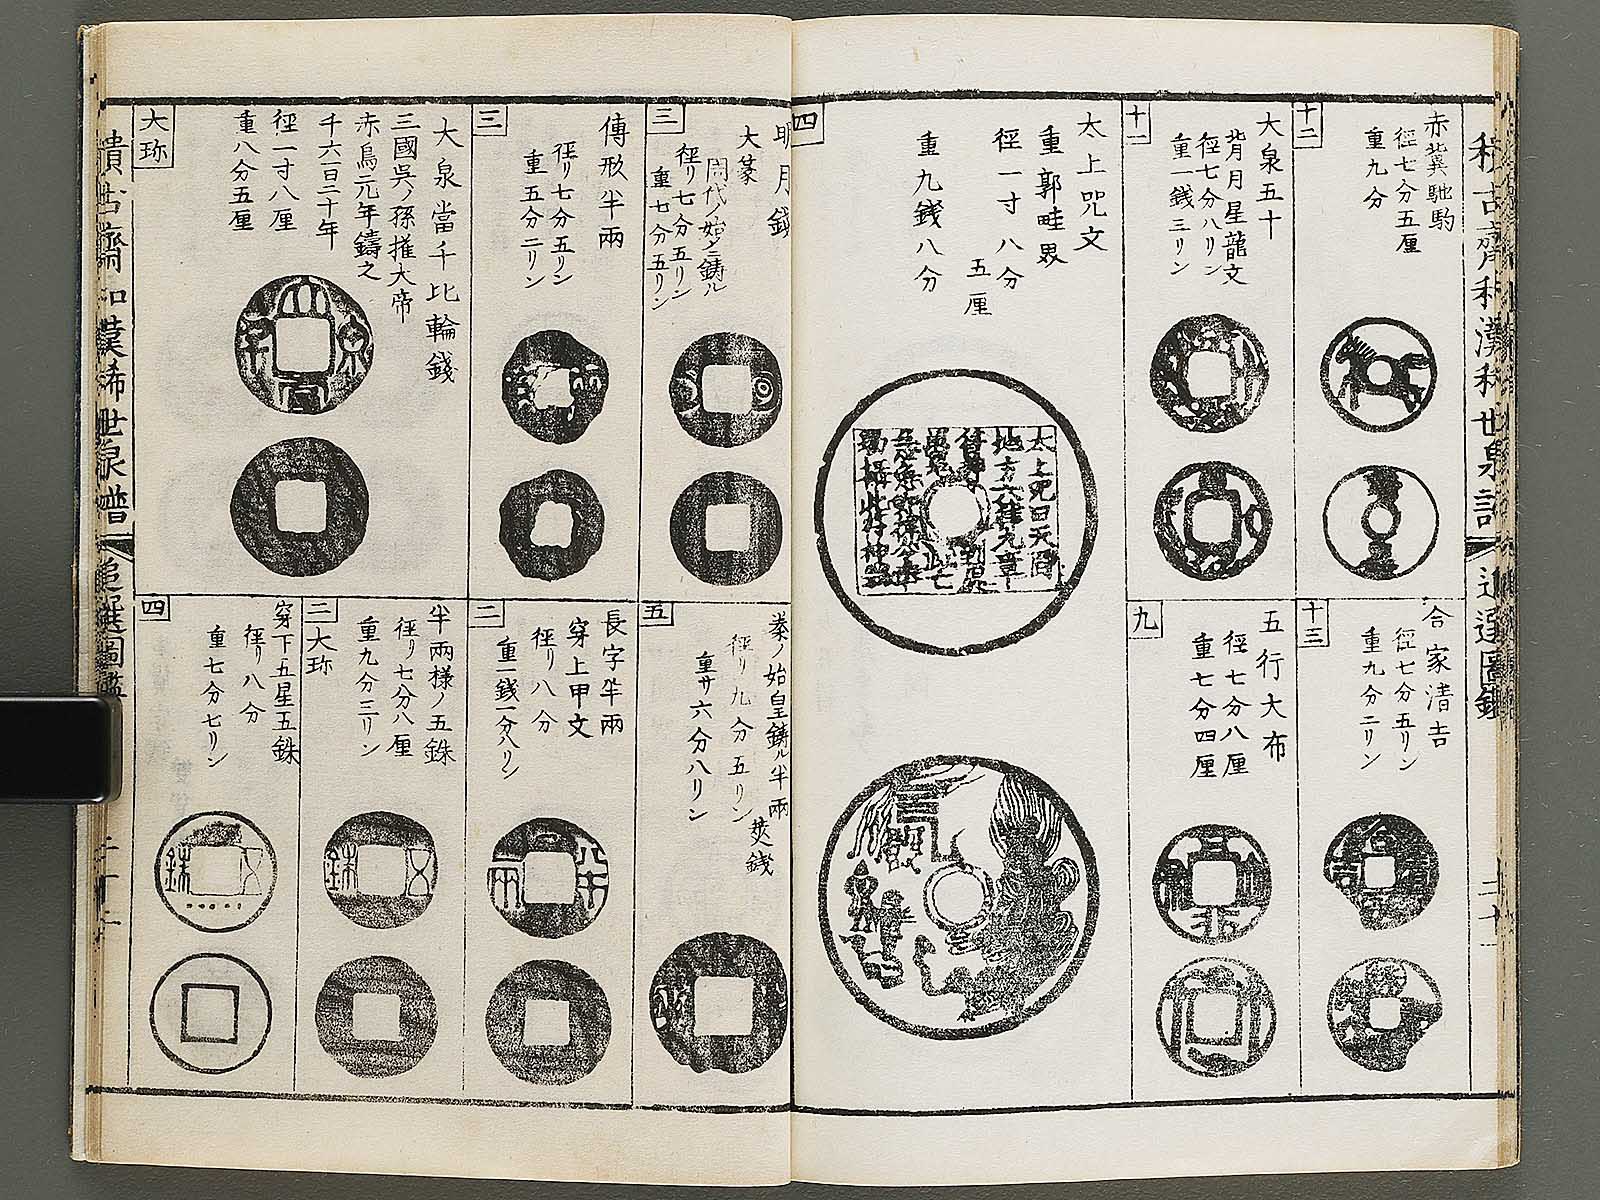 十二
赤冀馳駒
徑七分五厘
重九分
十一
大泉五十
背月星龍文
徑七分八リン
重一錢三リン
十三
合家清吉
徑七分五リン
重九分二リン
九
五行大布
徑七分八厘
重七分四厘
四
太上咒文
重郭畦界
徑一寸八分
五厘
重九錢八分
三
明月錢
大篆
周代ノ始メニ鋳ル
徑リ七分五リン
重七分五リン
三
傳形半兩
徑リ七分五リン
重五分二リン
大珎
大泉當千比輪錢
三國呉ノ孫權大帝
赤烏元年鑄之
千六百二十年
徑一寸八厘
重八分五厘
五
秦ノ始皇鋳ル半兩
莢錢
徑リ九分五リン
重サ六分八リン
二
長字半兩
穿上甲文
徑リ八分
重一錢一分八リン
二
大珎
半兩様ノ五銖
徑リ七分八厘
重九分三リン
四
穿下五星五銖
徑リ八分
重七分七リン